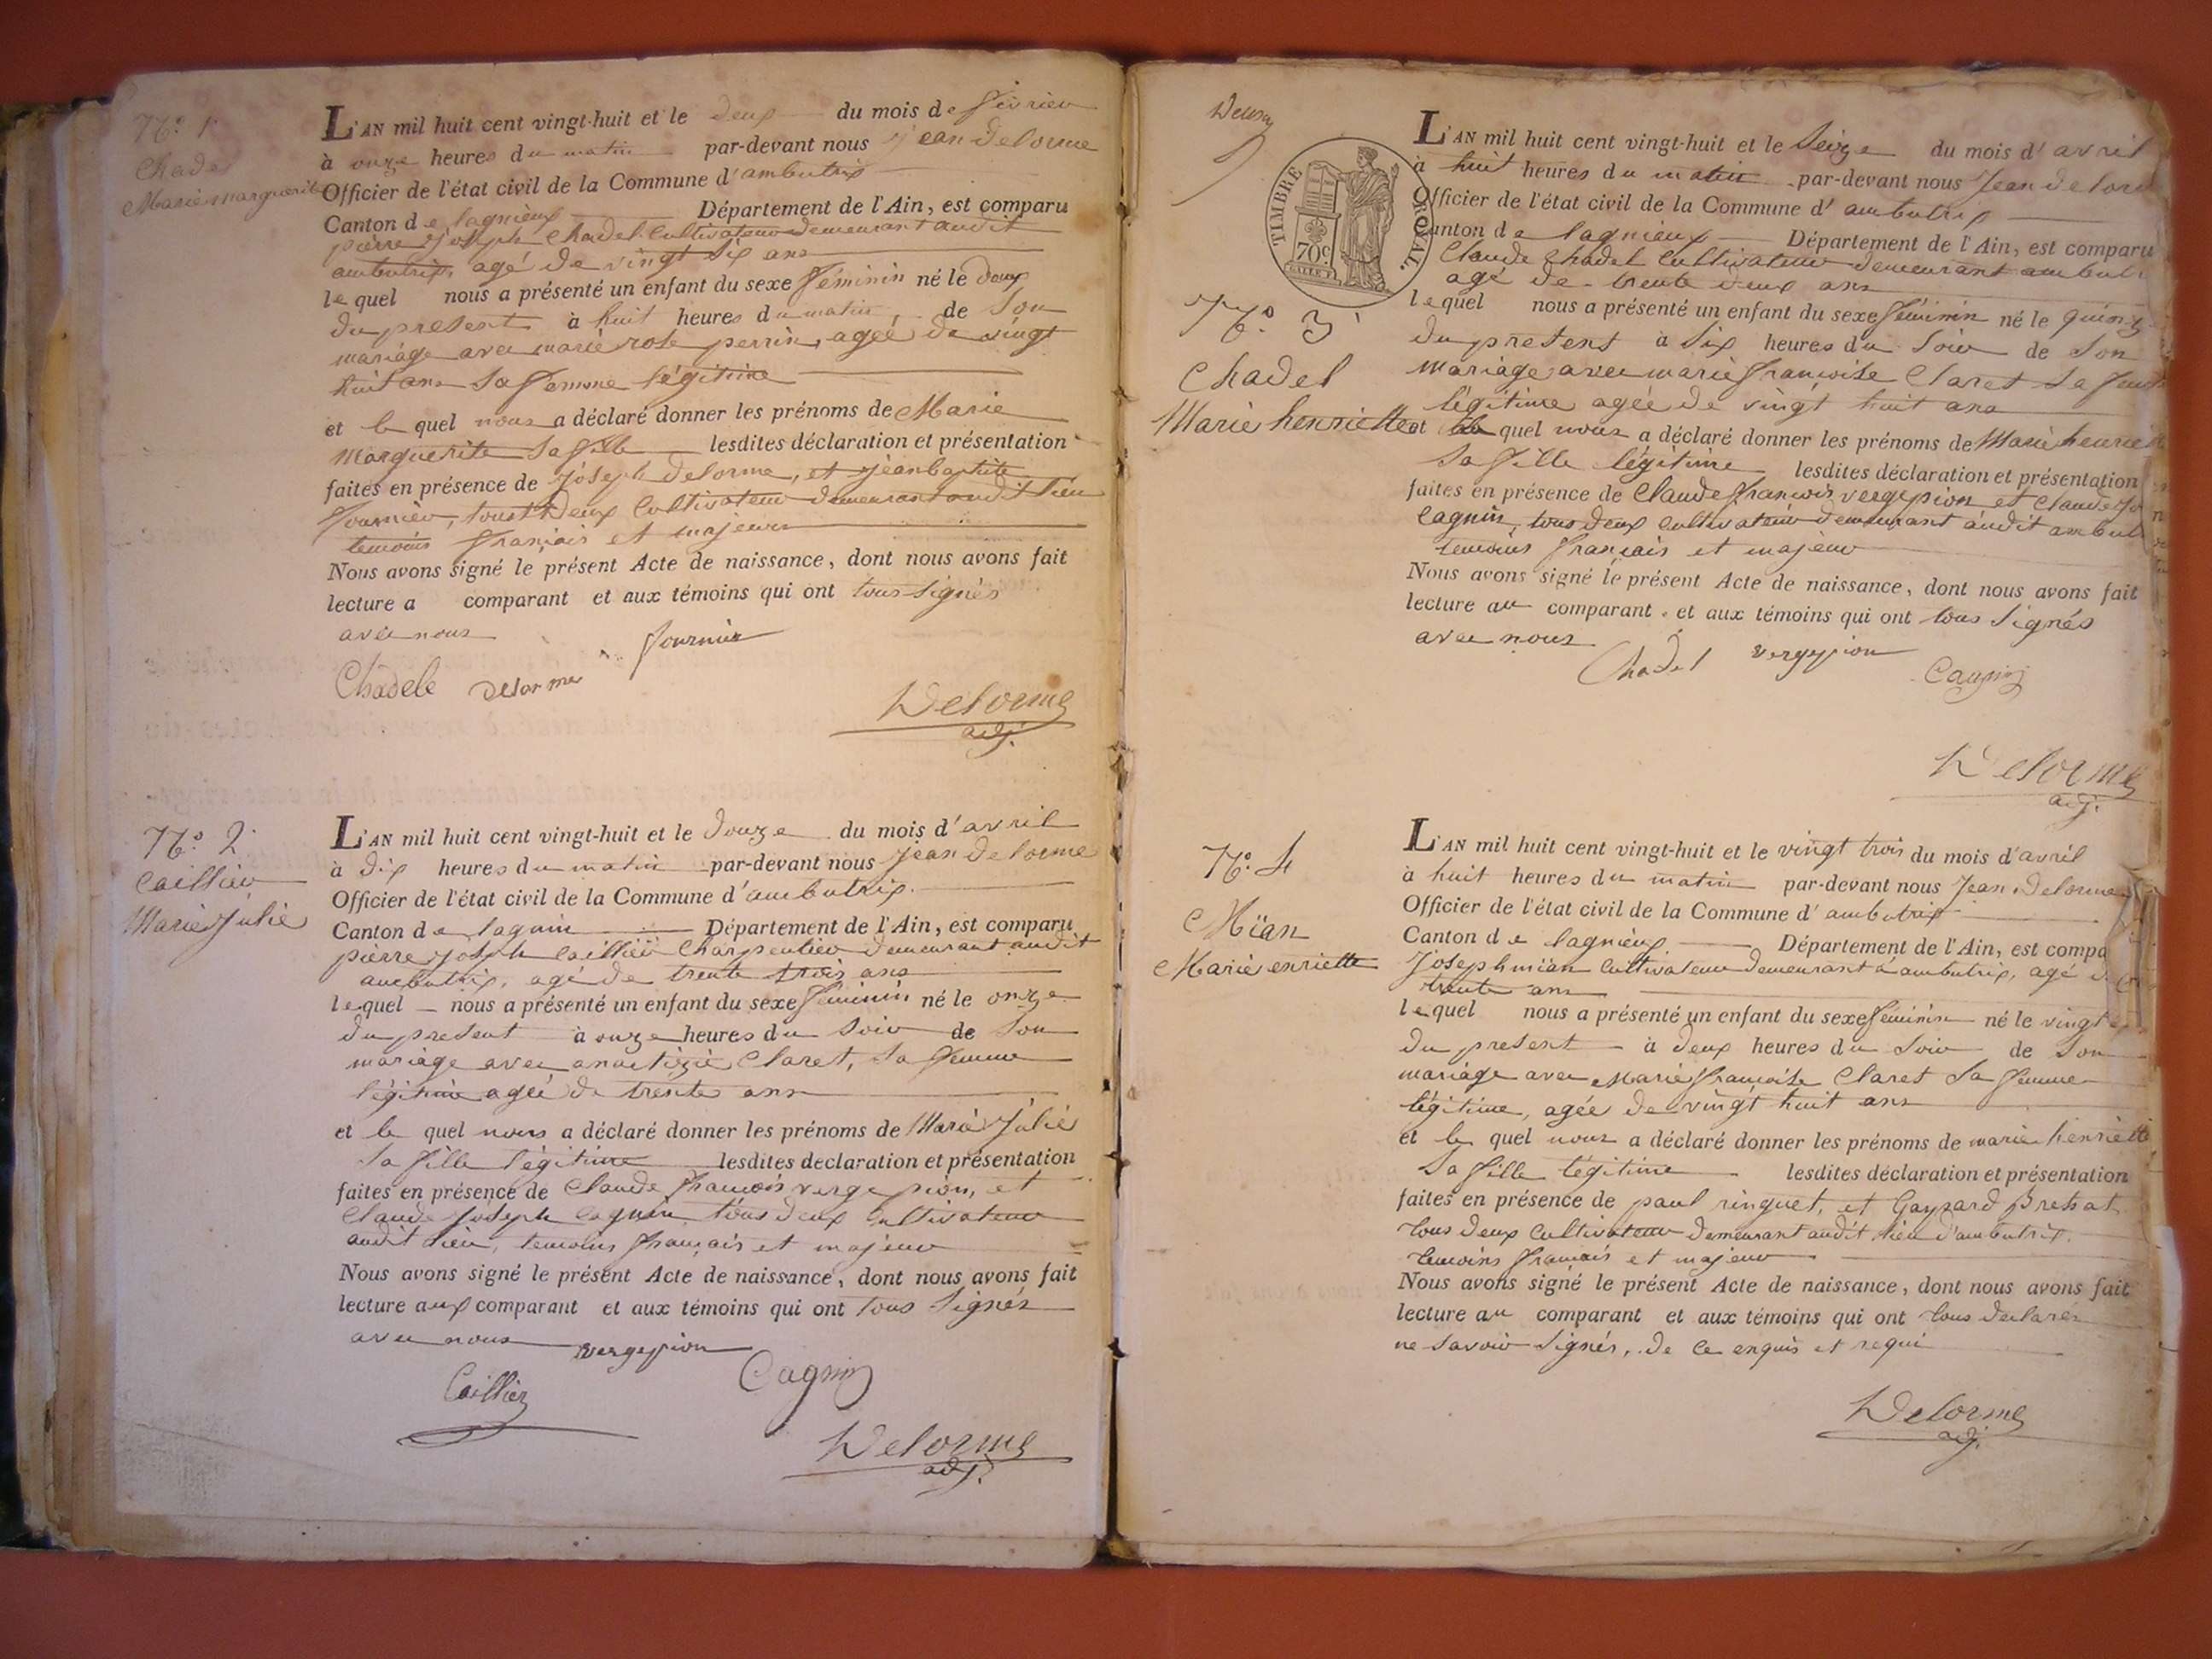 No. 1.
Chadel
Marie marguerite
L'AN mil huit cent vingt-huit et le deux du mois de février
à onze heures du matin par-devant nous jean Delorme
Officier de l'état civil de la Commune d'ambutrix
Canton de lagnieux Département de l'Ain, est comparu
pierre joseph Chadel Cultivateur demeurant audit
ambutrix, agé de vingt six ans
lequel nous a présenté un enfant du sexe féminin né le deux
du present à huit heures du matin, de son
mariage avec marie rose perrin, agée de vingt
huit ans sa femme légitime
et le quel nous a déclaré donner les prénoms de Marie
Marguerite sa fille lesdites déclaration et présentation
faites en présence de joseph delorme, et jean baptiste
fournier, tous deux Cultivateur demeurant audit lieu
temoins français et majeurs
Nous avons signé le présent Acte de naissance, dont nous avons fait
lecture a comparant et aux témoins qui ont tous signés
avec nous
fournier
Chadele delorme
Delorme
adj.
No. 2.
Caillier
Marie Julie
L'AN mil huit cent vingt-huit et le douze du mois d'avril
à dix heures du matin par-devant nous Jean Delorme
Officier de l'état civil de la Commune d'ambutrix.
Canton de lagnin Département de l'Ain, est comparu
pierre joseph Caillier Charpentier demeurant audit
ambutrix, agé de trente trois ans
lequel nous a présenté un enfant du sexe féminin né le onze
du present à onze heures du soir de son
mariage avec Claret, sa femme
légitime agée de trente ans
et le quel nous a déclaré donner les prénoms de Marie Julie
sa fille légitime lesdites declaration et présentation
faites en présence de Claude françois vergepion, et
Claude Joseph Cagnin tous deux Cultivateur
audit lieu, temoins français et majeur
Nous avons signé le présent Acte de naissance, dont nous avons fait
lecture aux comparant et aux témoins qui ont tous signés
avec nous vergepion
Caillier Cagnin
Delorme
adj.
TIMBRE ROYAL.
70c.
No. 3
Chadel
Marie henriette
L'AN mil huit cent vingt-huit et le seize du mois d'avril
à huit heures du matin par-devant nous Jean delorme
Officier de l'état civil de la Commune d'ambutrix
Canton de lagnieux Département de l'Ain, est comparu
Claude Chadel Cultivateur demeurant ambut
agé de trente deux ans
lequel nous a présenté un enfant du sexe féminin né le quinz
du present à six heures du soir de son
mariage avec marie françoise Claret sa fem
légitime agée de vingt huit ans
et le quel nous a déclaré donner les prénoms de Marie henrie
sa fille légitime lesdites déclaration et présentation
faites en présence de Claude françois vergepion et Claude jo
Cagnin, tous deux cultivateur demeurant audit ambut
temoins français et majeur
Nous avons signé le présent Acte de naissance, dont nous avons fait
lecture au comparant et aux témoins qui ont tous signés
avec nous
Chadel vergepion Cagnin
Delorme
adj.
No. 4
Mïan
Marie enriette
L'AN mil huit cent vingt-huit et le vingt trois du mois d'avril
à huit heures du matin par-devant nous Jean Delorme
Officier de l'état civil de la Commune d'ambutrix
Canton de lagnieux Département de l'Ain, est compa
Joseph mïan Cultivateur demeurant à ambutrix, agé d
trente ans
lequel nous a présenté un enfant du sexe féminin né le vingt
du present à deux heures du soir de son
mariage avec Marie françoise Claret sa femme
légitime, agée de vingt huit ans
et le quel nous a déclaré donner les prénoms de marie henriette
sa fille légitime lesdites déclaration et présentation
faites en présence de paul ringuet, et Gaspard Bressat
tous deux Cultivateur demeurant audit lieu d'ambutrix.
temoins français et majeur
Nous avons signé le présent Acte de naissance, dont nous avons fait
lecture au comparant et aux témoins qui ont tous declarés
ne savoir signés, de ce enquis et requi
Delorme
adj.